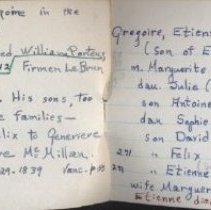 in the
William Porteus
Firmen Le Brun
His sons, too
families —
to Genevieve
Mc Millan.
29. 1839 Vanc. p
Gregoire, Etien
(son of E
m. Marguerite
dau. Julie (
son Antoine
dau Sophie
son David
27/ " Felix
" Etienne
wife Marguer
Etienne die